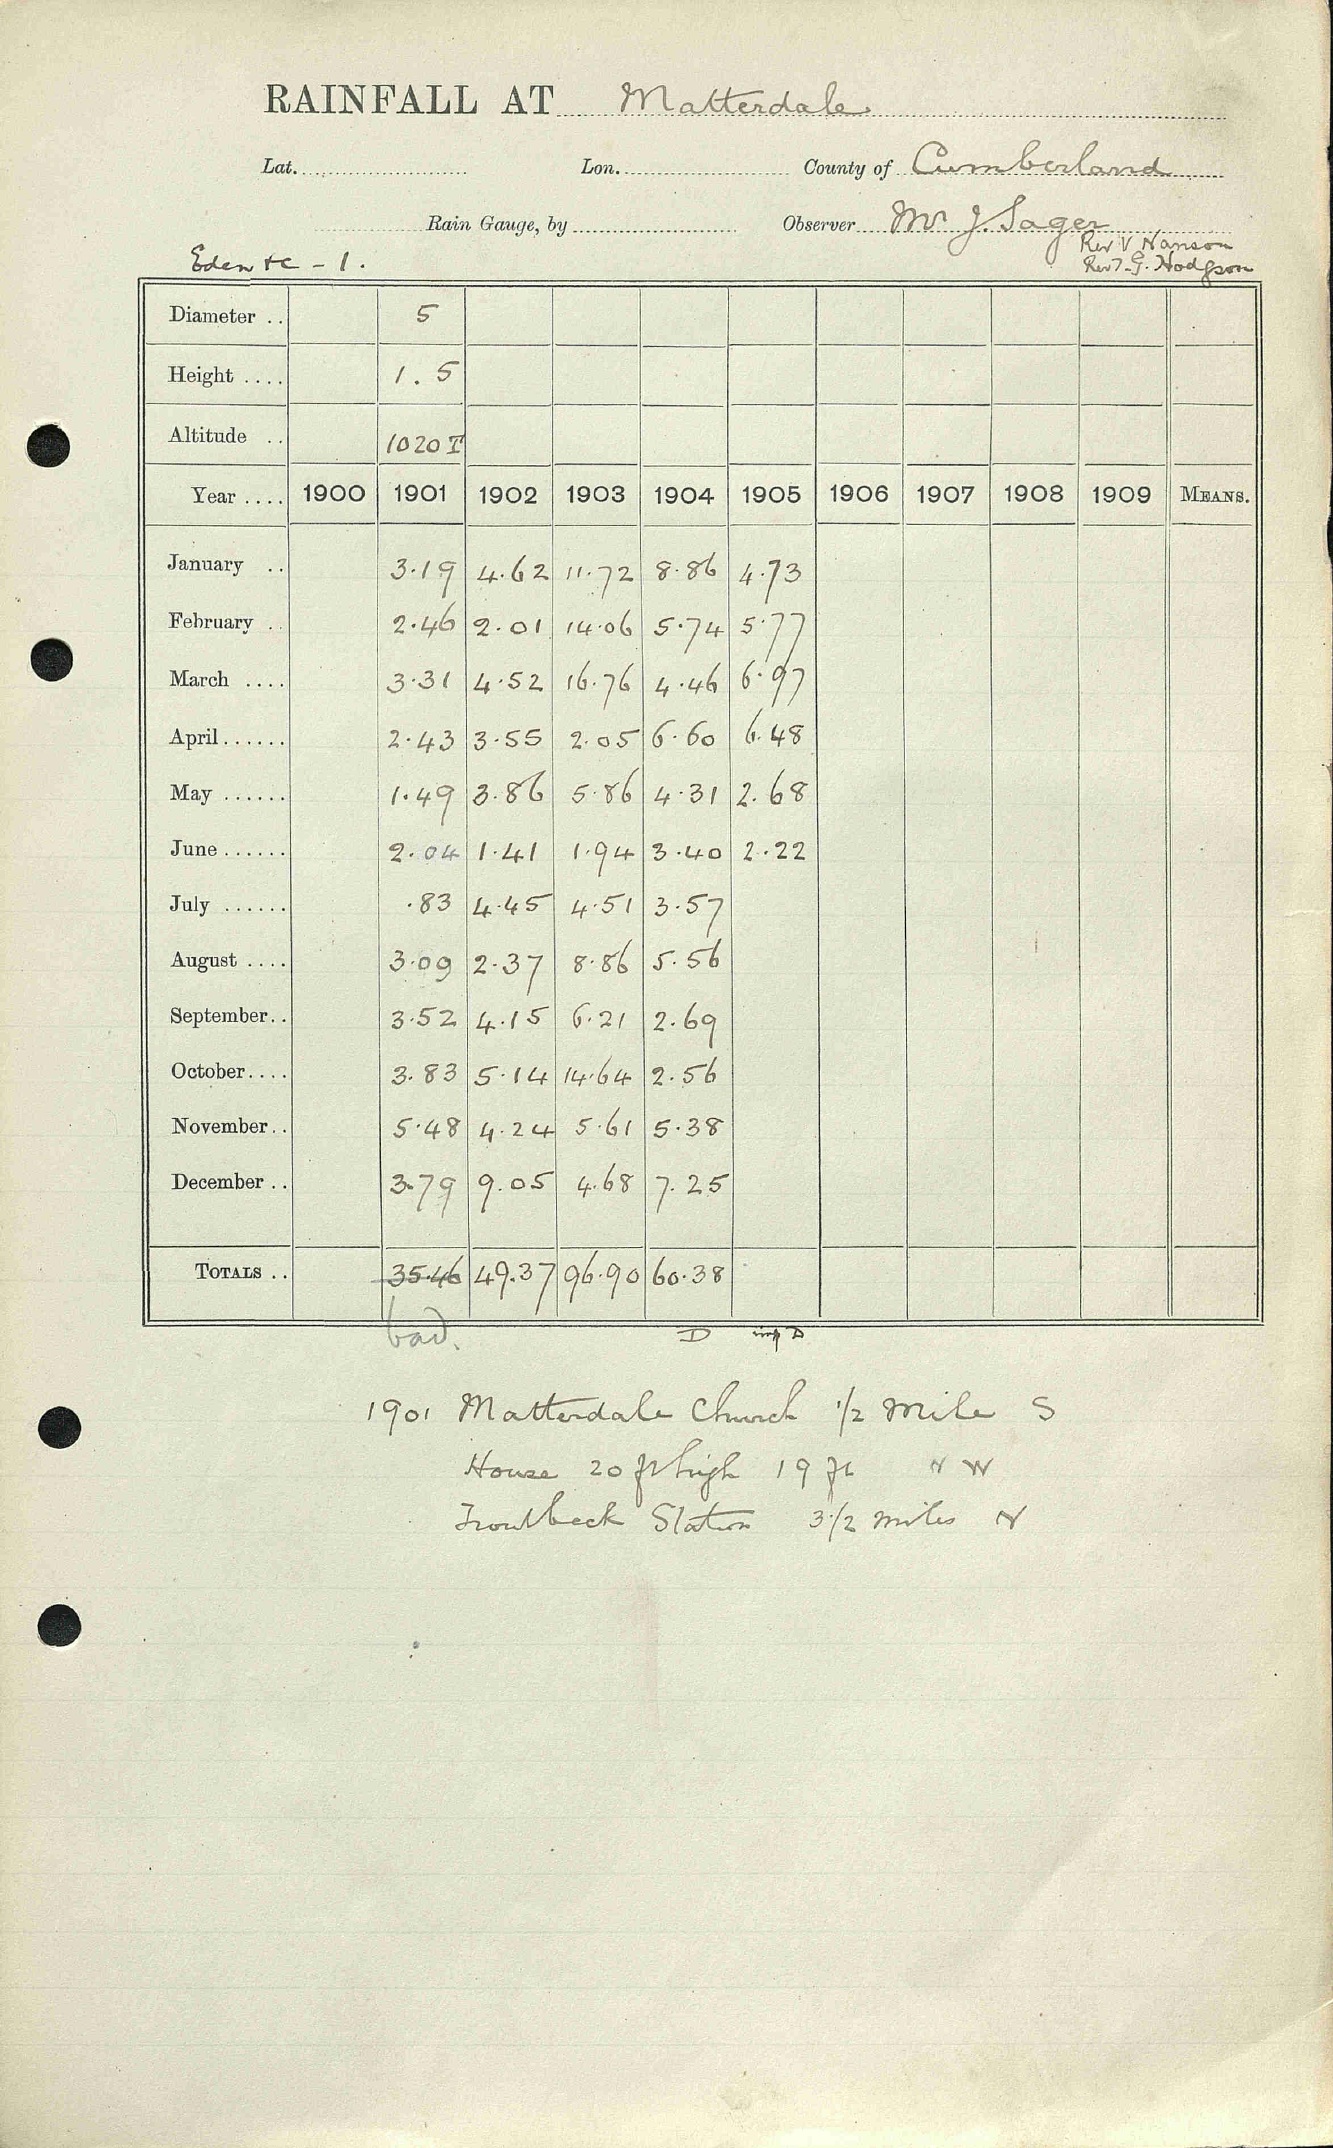 RAINFALL AT Matterdale
Lat. Lon. County of Cumberland
Rain Gauge, by Observer Mr J. Sager
Rev V Hanson
Eden &c - 1. Rev T. G. Hodgson
Diameter .. 5
Height .... 1.5
Altitude .. 1020 T
Year .... 1900 1901 1902 1903 1904 1905 1906 1907 1908 1909 MEANS.
January .. 3.19 4.62 11.72 8.86 4.73
February .. 2.46 2.01 14.06 5.74 5.77
March .... 3.31 4.52 16.76 4.46 6.97
April...... 2.43 3.55 2.05 6.60 6.48
May ...... 1.49 3.86 5.86 4.31 2.68
June...... 2.04 1.41 1.94 3.40 2.22
July ...... .83 4.45 4.51 3.57
August .... 3.09 2.37 8.86 5.56
September.. 3.52 4.15 6.21 2.69
October.... 3.83 5.14 14.64 2.56
November.. 5.48 4.24 5.61 5.38
December .. 3.79 9.05 4.68 7.25
TOTALS .. 35.46 49.37 96.90 60.38
bad. D imp D
1901 Matterdale Church 1/2 Mile S
House 20 ft high 19 ft N W
Troutbeck Station 3 1/2 miles N